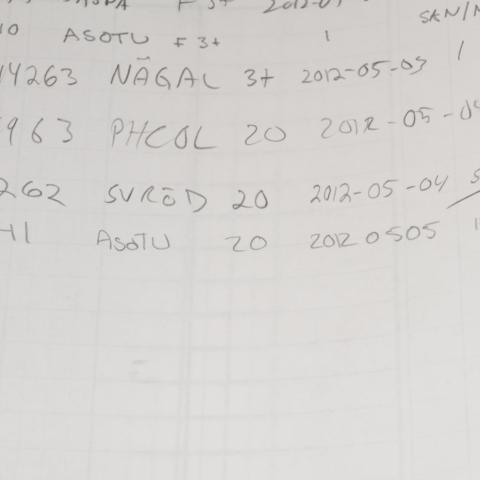 F 3+ 2012-0
10 ASOTU F 3+ 1 SKN/
14263 NÄGAL 3+ 2012-05-03 1
963 PHCOL 20 2012-05-04
262 SVRÖD 20 2012-05-04
41 ASOTU 20 20120505